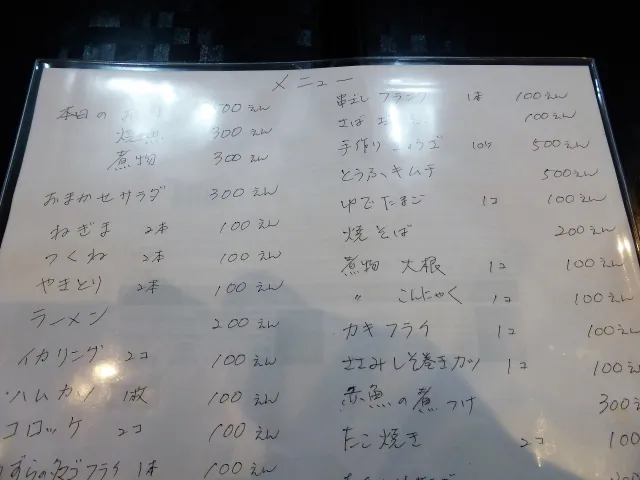 メニュー
本日の 00えん
焼魚 300えん
煮物 300えん
おまかせサラダ 300えん
ねぎま 2本 100えん
つくね 2本 100えん
やきとり 2本 100えん
ラーメン 200えん
イカリング 2コ 100えん
ハムカツ 1枚 100えん
コロッケ 2コ 100えん
フライ 1本 100えん
串さしフランク 1本 100えん
さば 100えん
手作り 10ケ 500えん
とうふキムチ 500えん
ゆでたまご 1コ 100えん
焼そば 200えん
煮物 大根 1コ 100えん
〃 こんにゃく 1コ 100えん
カキフライ 1コ 100えん
ささみしそ巻きカツ 1コ 100えん
赤魚の煮つけ 300えん
たこ焼き 2コ 100